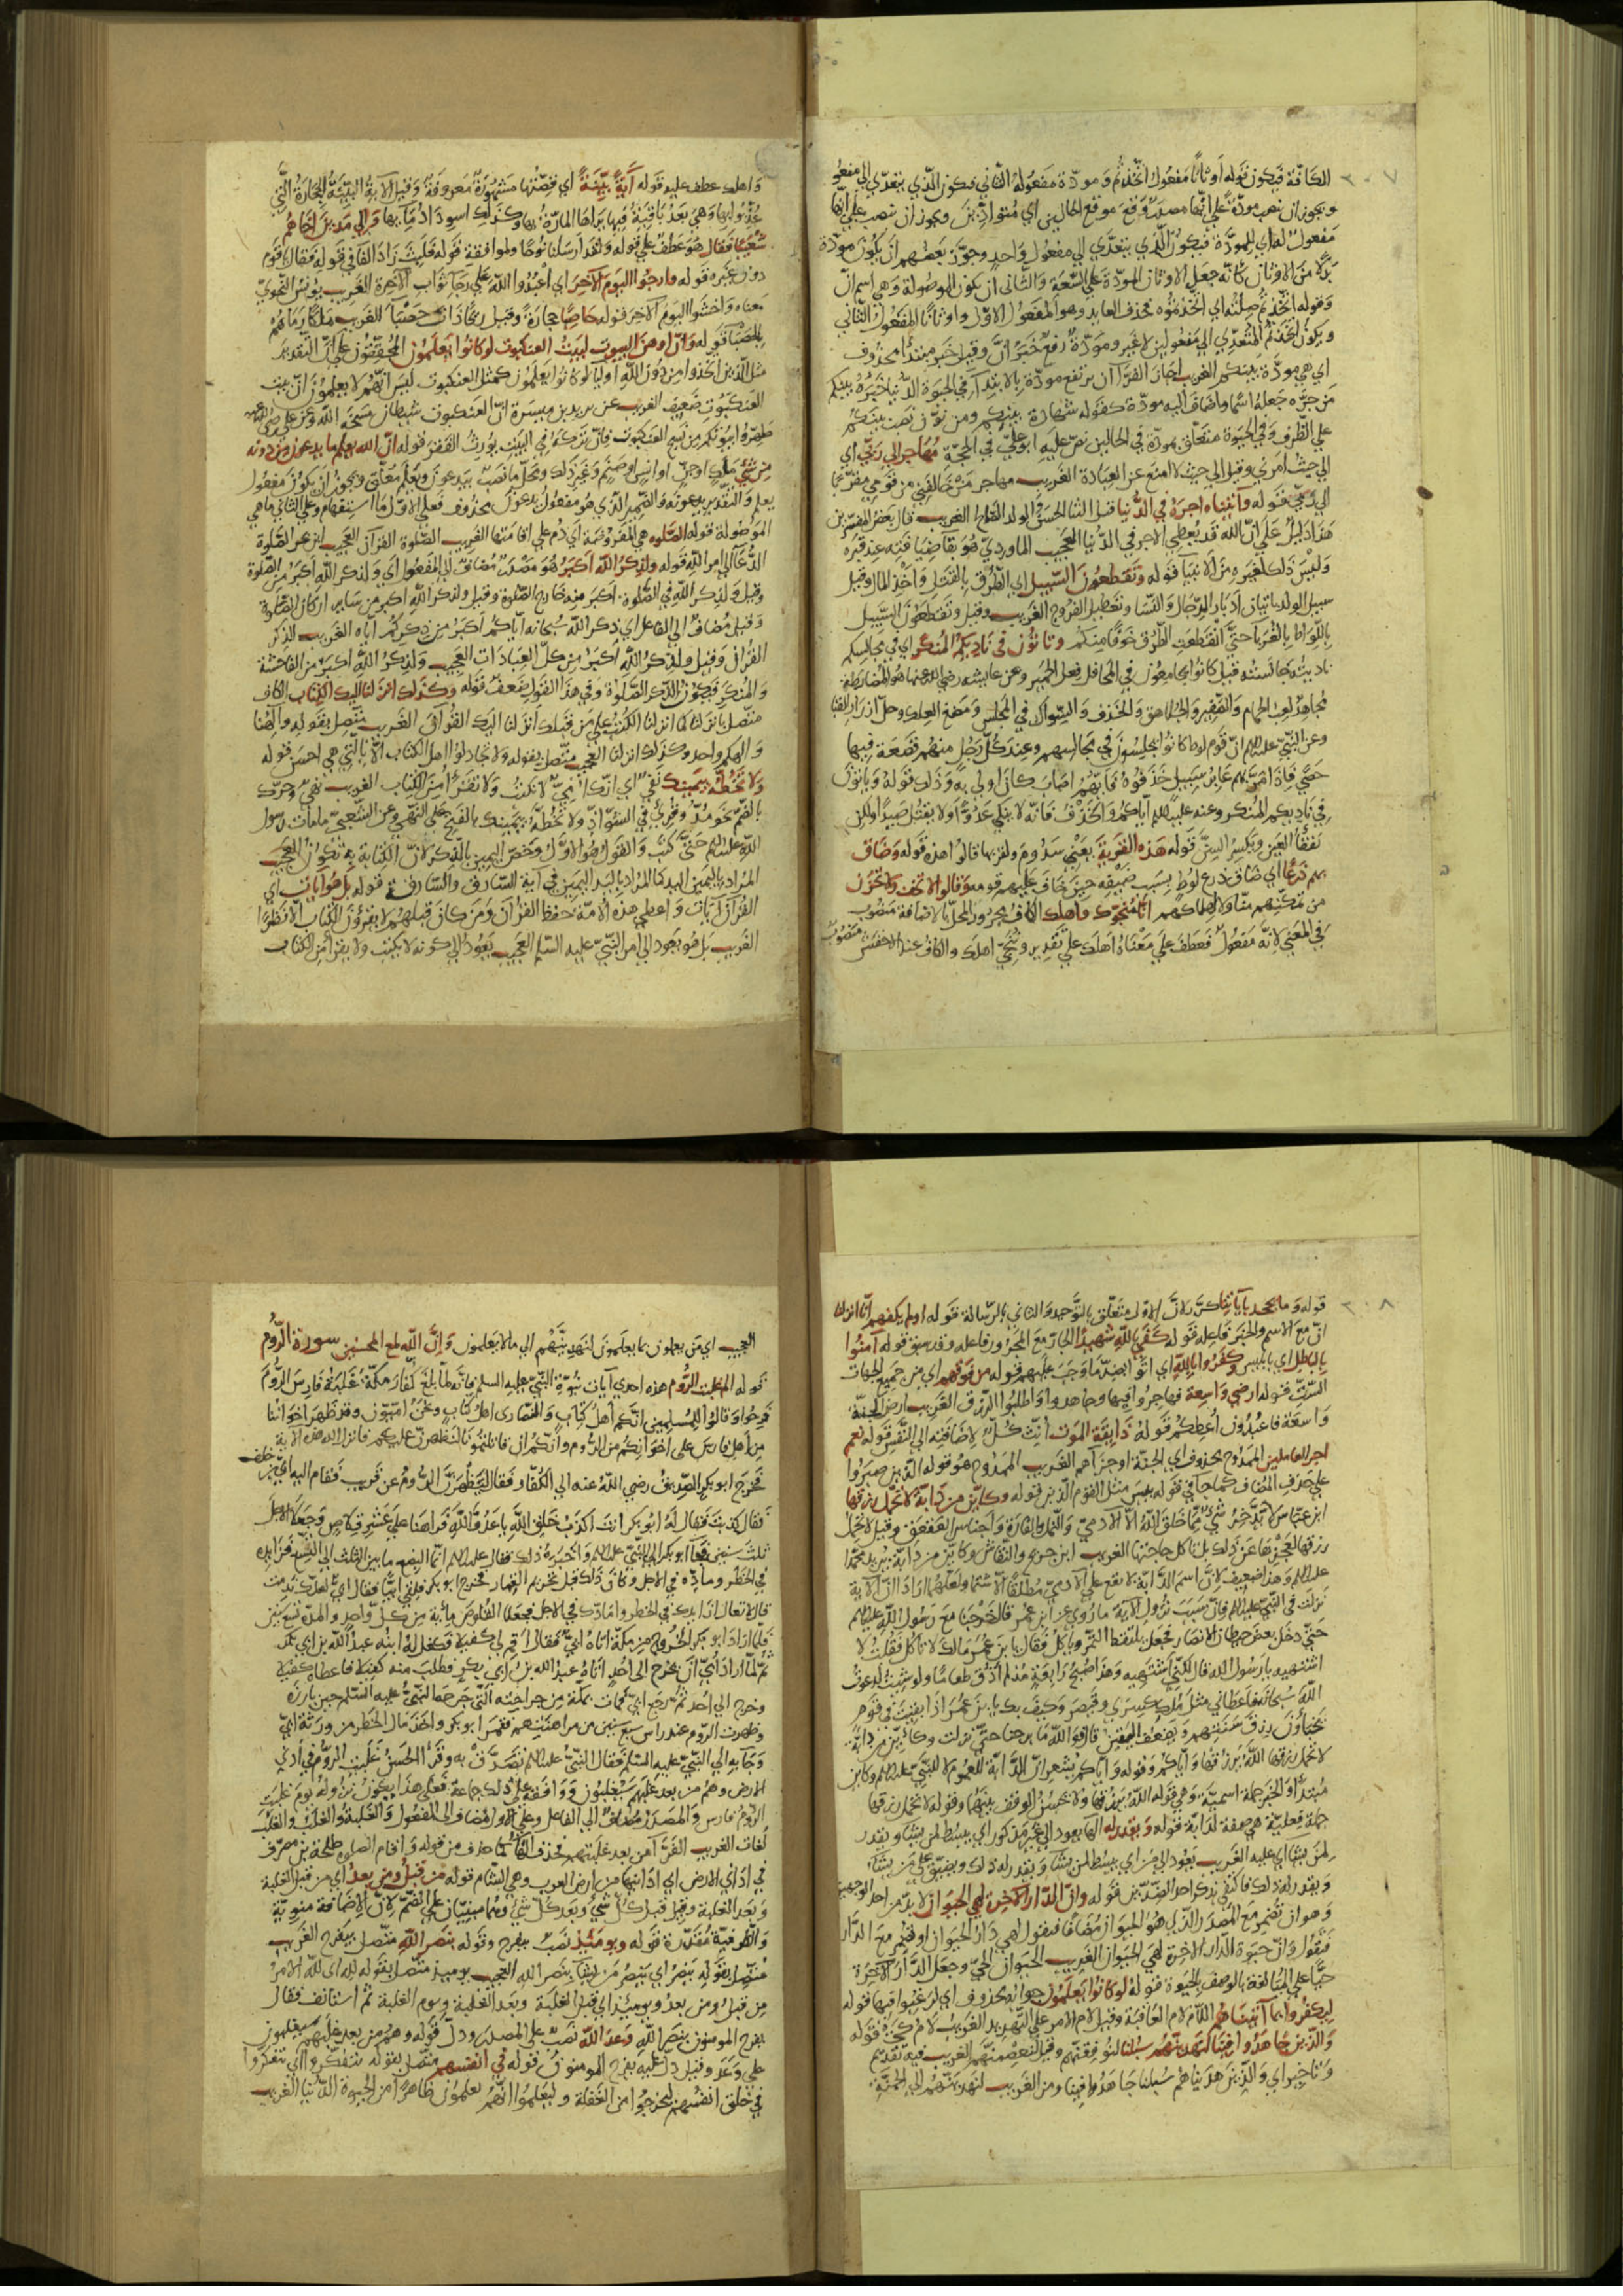 ٢٠٧
الكافة فيكون قوله أوثانًا مفعول اتخذتم ومودّة مفعوله الثاني فيكون الذي يتعدي الي مفعو
ويجوز ان نصب مودة علي انها مصدر وقع موقع الحال اي متوادّين ويجوز ان نصب علي انها
مفعول له اي للمودّة فيكون الذي يتعدّي الي مفعول واحد وجوّز بعضهم ان يكون مودّة
بدلًا من الاوثان كانه جعل الاوثان المودّة علي السّعة والثّاني ان يكون الموصولة وهي اسم انّ
وقوله اتخذتم صلته اي اتخذتموه فحذف العايد وهو المفعول الاوّل واوثانًا المفعول الثاني
ويكون اتخذتم المتعدّي الي مفعولين لا غير ومودّة رفع خبر انّ وقيل خبر مبتدأ محذوف
اي هي مودّة بينكم الغريب اجاز الفرّا ان يرتفع مودّة بالابتدآء في الحيوة الدّنيا خبره بينكم
من جرّه جعله اسما واضاف اليه مودّة كقوله شهادة بينكم ومن نوّن نصب بينكم
علي الظرف وفي الحيوة متعلّق بمودّة في الحالين نصّ عليه ابو عليّ في الحجّة مهاجر إلي ربّي اي
الي حيث امرني وقيل الي حيث لا امنع عن العبادة الغريب مهاجر من خالفني من قومي متقربًا
الي ربّي قوله وآتيناه اجره في الدّنيا قيل الثنا الحسن والولد الصّالح الغريب قال بعض المفسّرين
هذا دليل علي انّ الله قد يعطي الاجر في الدّنيا العجيب الماورديّ هو بقا ضيافته عند قبره
وليس ذلك لغيره من الانبيا قوله وتقطعون السّبيل اي الطّرق بالقتل واخذ المال وقيل
سبيل الولد باتيان ادبار الرّجال والنّسا وتعطيل الفروج الغريب وقيل وتقطعون السّبيل
باللّواط بالغربا حتّي انقطعت الطّرق خوفًا منكم وتاتون في ناديكم المنكر اي في مجالسكم
وعن النّبيّ عليلم انّ قوم لوط كانوا يجلسون في مجالسهم وعند كلّ رجل منهم قصعة فيها
حصي فاذا مرّ بهم عابر سبيل خذفوه فايّهم اصاب كان اولي به وذلك قوله وياتون
نفقًا العين ويكسر السنّ قوله هذه القرية يعني سدوم ولقربها قالوا هذه قوله وضاق
بهم ذرعًا اي ضاق ذرع لوط بسبب ضيفه حين خاف عليهم قومه وقالوا لا تخف ولا تحزن
في المعني لانّه مفعول فعطف علي معناه اهلك علي تقدير وننجّي اهلك والكاف عند الاخفش منصوب
واهلك عطف عليه قوله آية بيّنة اي قصّتها مشهورة معروفة وقيل الآية البيّنة الحجارة الّتي
عذّبوا بها وهي بعد باقية فيها يراها المارّة بها وكذلك اسوداد مآيها والي مدين اخاهم
شعيبا فقال هو عطف علي قوله ولقد ارسلنا نوحًا وللموافقة قوله فلبث زاد الفا في قوله فقال يقوم
دون غيره قوله وارجوا اليوم الآخر اي اعبدوا الله علي رجآ ثواب الآخرة الغريب يونس النّحويّ
معناه واخشوا اليوم الآخر قوله حاصبًا حجارة وقيل ريحًا ذات حصبآ الغريب ملكًا رماهم
بالحصبآ قوله وانّ اوهن البيوت لبيت العنكبوت لو كانوا يعلمون المحقّقون علي انّ التقدير
مثل الّذين اتّخذوا من دون الله اوليآ لو كانوا يعلمون كمثل العنكبوت ليس انّهم لا يعلمون انّ بيت
العنكبوت ضعيف الغريب عن يزيد بن ميسرة انّ العنكبوت شيطان مسخه الله وعن علي رضي الله عنه
طهّروا بيوتكم من نسج العنكبوت فانّ تركه في البيت يورث الفقر قوله انّ الله يعلم ما يدعون من دونه
من شئ ملك او جنّ او انس او صنم وغير ذلك ومحلّ ما نصب بيدعون ويعلم معلّق ويجوز ان يكون مفعول
يعلم والتّقدير يدعونه والضّمير الّذي هو مفعول يدعون محذوف فعلي الاوّل ما استفهام وعلي الثاني ما هي
الموصولة قوله الصّلوه هي المفروضة اي دم علي اقامتها الغريب الصّلوة القرآن العجيب ابن عمر الصّلوة
الدّعآ الي امر الله قوله ولذكر الله أكبر هو مصدر مضاف الي المفعول اي ولذكر الله أكبر من الصّلوة
وقيل ولذكر الله في الصّلوة اكبر منه خارج الصّلوة وقيل ولذكر الله اكبر من ساير اركان الصّلوة
وقيل مضاف الي الفاعل اي ذكر الله سبحانه ايّاكم اكبر من ذكركم ايّاه الغريب الذّكر
القرآن وقيل ولذكر الله أكبر من كلّ العبادات العجيب ولذكر الله اكبر من الفاحشة
والمنكر فيكون الذّكر الصّلوة وفي هذا القول ضعف قوله وكذلك انزلنا اليك الكتاب الكاف
متّصل بانزلنا كما انزلنا الكتب علي من قبلك انزلنا اليك القرآن الغريب متّصل بقوله والهنا
والهكم واحد وكذلك انزلنا العجيب متّصل بقوله ولا تجادلوا اهل الكتاب الّا بالّتي هي احسن قوله
ولا تخطّه بيمينك نفي اي انّك امّيّ لا تكتب ولا تقرأ من الكتاب الغريب نهي وحرّك
بالضّم نحو مدّ وقرئ في الشّواذّ ولا تخطّه بيمينك بالفتح علي النّهي وعن الشّعبيّ ما مات رسول
الله عليلم حتّي كتب والقول هو الاوّل وخصّ اليمين بالذّكر لانّ الكتابة بها تكون العجيب
المراد باليمين اليد كما المراد باليد اليمين في آية السّارق والسّارقة قوله بل هو آيات اي
القرآن آيات واعطي هذه الامّة حفظ القرآن ومن كان قبلهم لا يقرؤن الكتاب الّا نظرًا
الغريب بل هو يعود الي امر النّبيّ عليه السّلم العجيب يعود الي كونه لا يكتب ولا يقرأ من الكتاب
٢٠٨
قوله وما يجحد بآياتنا كرّر لانّ الاوّل متعلّق بالتّوحيد والثاني بالرّسالة قوله اولم يكفهم انّا انزلنا
انّ مع الاسم والخبر فاعله قوله كفي بالله شهيدًا الجارّ مع المجرور فاعله وقد سبق قوله آمنوا
بالباطل اي بابليس وكفروا بالله اي اتوا بضدّ ما وجب عليهم قوله من فوقهم اي من جميع الجهات
السّتّ قوله ارضي واسعة فهاجروا فيها وجاهدوا واطلبوا الرّزق الغريب ارض الجنّة
واسعة فاعبدون أعطكم قوله ذايقة الموت أنّث كلّ لاضافته الي النّفس قوله نعم
اجر العاملين الممدوح محذوف اي الجنّة او جزآهم الغريب الممدوح هو قوله الذين صبروا
علي حذف المضاف كما جا في قوله بيس مثل القوم الّذين قوله وكايّن من دابّة لا تحمل رزقها
ابن عبّاس لا يدّخر شئ ممّا خلق الله الّا الآدميّ والنّمل والفارة واجناس العقعق وقيل لا تحمل
رزقها لعجزها عن ذلك بل تاكل حاجتها الغريب ابن جرير والنّقاش وكايّن من دابّة يريد محمّدًا
عليلم وهذا ضعيف لانّ اسم الدّابّة لا يقع علي الآدميّ مطلقًا
نزلت في النّبيّ عليلم فانّ سبب نزول الآية ما روي عن ابن عمر قال خرجنا مع رسول الله عليلم
حتّي دخل بعض حيطان الانصار فجعل يلتقط التّمر وياكل فقال يا بن عمر مالك لا تاكل فقلت لا
اشتهيه يا رسول الله قال لكنّي اشتهيه وهذا صبح رابعة منذ لم اذق طعامًا ولو شيت لدعوت
الله سبحانه فاعطاني مثل ملك كسري وقيصر وكيف بك يا بن عمر اذا بقيت في قوم
يخبأون رزق سنتهم ويضعف اليقين قال فو الله ما برحنا حتّي نزلت وكايّن من دابّة
لا تحمل رزقها الله يرزقها وايّاكم وقوله وايّاكم يشعر انّ الدّابّة للعموم لا للنّبيّ عليلم وكاين
مبتدأ والخبر جملة اسميّة وهي قوله الله يرزقها ولا يحسن الوقف بينهما وقوله لا تحمل رزقها
جملة فعليّة هي صفة لدابّة قوله ويقدر له الها يعود الي غير مذكور اي يبسط لمن يشا ويقدر
لمن يشا اي عليه الغريب يعود الي من اي يبسط لمن يشا ويقدر له ذلك ويضيّق علي من يشآ
ويقدر له ذلك فاكتفي بذكر احد الضّدّين قوله وانّ الدّار الآخرة لهي الحيوان لا بدّ من احد الوجهين
وهو ان تضمر مع المصدر الّذي هو الحيوان مضافًا فتقول لهي دار الحيوان او تضمر مع الدّار
فتقول وانّ حيوة الدّار الآخرة لهي الحيوان الغريب الحيوان الحيّ وجعل الدّار الآخرة
حيًّا علي المبالغة بالوصف بالحيوة قوله لو كانوا يعلمون جوابه محذوف اي لرغبوا فيها قوله
ليكفروا بما آتيناهم اللّام لام العاقبة وقيل لام الامر علي التّهديد الغريب لام كي قوله
والّذين جاهدوا فينا لنهدينّهم سبلنا لنوفّقنّهم وقيل لنعصمنّهم الغريب فيه تقديم
وتاخير اي والّذين هديناهم سبلنا جاهدوا فينا ومن الغريب لنهدينّهم الي الجنّة
العجيب اي من يعملون بما يعلمون لنهدينّهم الي ما لا يعلمون وانّ الله لمع المحسنين سورة الرّوم
قوله الم غلبت الرّوم هذه احدي آيات نبوّة النّبيّ عليه السلم فانّه لمّا بلغ كفّار مكّة غلبة فارس الرّوم
فرحوا وقالوا للمسلمين انّكم أهل كتاب والنّصاري اهل كتاب ونحن امّيّون وقد ظهر اخواننا
من اهل فارس علي اخوانكم من الرّوم وانّكم ان قاتلتمونا لنظهرنّ عليكم فانزل الله هذه الآية
فخرج ابو بكر الصّدّيق رضي الله عنه الي الكفّار فقال ليظهرنّ الرّوم عن قريب فقام اليه ابيّ بن خلف
فقال كذبت فقال له ابو بكر انت اكذب خلق الله يا عدوّ الله فراهنا علي عشر قلاص وجعلا الاجل
ثلث سنين فجآ ابو بكر الي النّبيّ عليلم واخبره ذلك فقال عليلم انّما البضع ما بين الثلث الي التّسع فزايده
في الخطر ومادّه في الاجل وكان ذلك قبل تحريم القمار فخرج ابو بكر فلقي ابيًّا فقال ابيّ لعلّك ندمت
قال لا تعال ازايدك في الخطر وامادّك في الاجل فجعلا القلوص مأية من كلّ واحد والمدّة تسع سنين
فلمّا اراد ابو بكر الخروج من مكّة اتاه ابيّ فقال اقم لي كفيلًا فكفل له ابنه عبد الله بن ابي بكر
ثمّ لمّا اراد ابيّ ان يخرج الي احد اتاه عبد الله بن ابي بكر فطلب منه كفيلا فاعطاه كفيلا
وخرج الي احد ثمّ رجع ابيّ فمات بمكّة من جراحته الّتي جرحها النّبيّ عليه السّلم حين بارزه
وظهرت الرّوم عند راس سبع سنين من مراهنتهم فقمر ابو بكر واخذ مال الخطر من ورثة ابيّ
وجآ به الي النّبيّ عليه السّلم فقال النّبيّ عليلم تصدّق به وقرأ الحسن غلبت الرّوم في ادني
الارض وهم من بعد غلبهم سيغلبون ووافقه علي ذلك جماعة فعلي هذا يكون نزوله يوم غلبت
الرّوم فارس والمصدر مضاف الي الفاعل وعلي الاوّل مضاف الي المفعول والغلبة والغلب والغلب
لغات الغريب الفرّآ من بعد غلبتهم فحذف التّآ كما حذف من قوله واقام الصلوه طلحة بن مصرّف
في اداني الارض اي ادانيها من ارض العرب وهي الشّام قوله من قبل ومن بعد اي من قبل الغلبة
وبعد الغلبة وقيل قبل كلّ شئ وبعد كلّ شئ وهما مبنيّان علي الضّمّ لانّ الاضافة منويّة
والظرفيّة مقدّرة قوله ويومئذ نصب بيفرح وقوله بنصر الله متّصل بيفرح الغريب
متّصل بقوله ينصر اي ينصر من يشآ بنصر الله العجيب يوميذ متّصل بقوله لله اي لله الامر
من قبل ومن بعد ويوميذ اي قبل الغلبة وبعد الغلبة ويوم الغلبة ثمّ استانف فقال
يفرح المومنون بنصر الله وعد الله نصب علي المصدر ودلّ قوله وهم من بعد غلبهم سيغلبون
علي وعد وقيل دلّ عليه يفرح المومنون قوله في انفسهم متّصل بقوله يتفكّروا اي يتفكّروا
في خلق انفسهم ليخرجوا من الغفلة وليعلموا انّهم يعلمون ظاهرًا من الحيوة الدّنيا الغريب